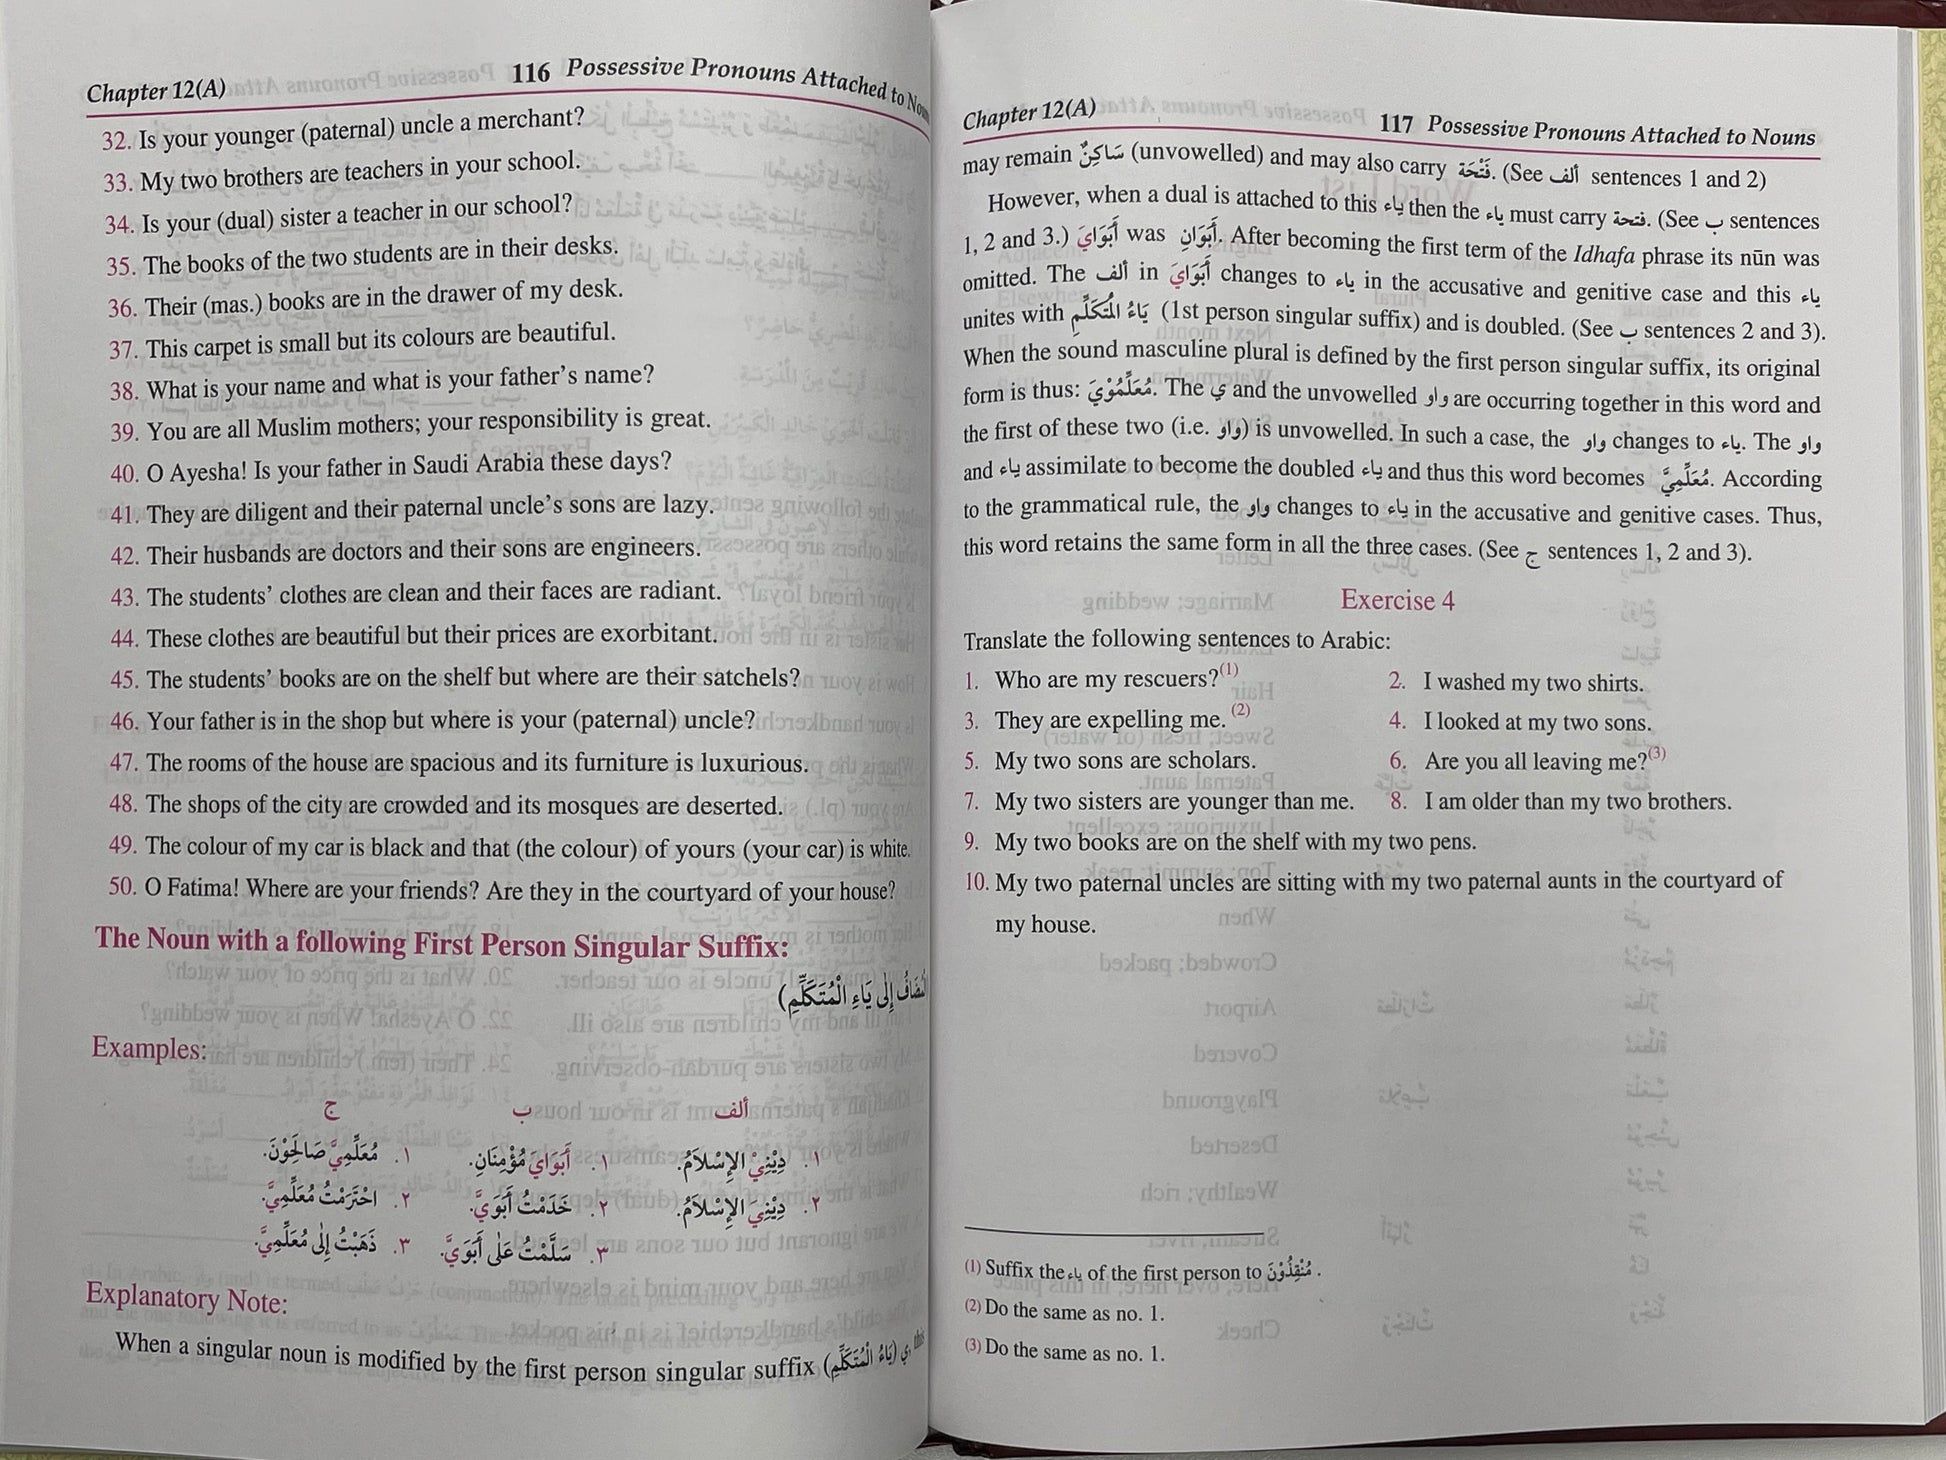 Chapter 12(A) 116 Possessive Pronouns Attached to Nouns
32. Is your younger (paternal) uncle a merchant?
33. My two brothers are teachers in your school.
34. Is your (dual) sister a teacher in our school?
35. The books of the two students are in their desks.
36. Their (mas.) books are in the drawer of my desk.
37. This carpet is small but its colours are beautiful.
38. What is your name and what is your father's name?
39. You are all Muslim mothers; your responsibility is great.
40. O Ayesha! Is your father in Saudi Arabia these days?
41. They are diligent and their paternal uncle's sons are lazy.
42. Their husbands are doctors and their sons are engineers.
43. The students' clothes are clean and their faces are radiant.
44. These clothes are beautiful but their prices are exorbitant.
45. The students' books are on the shelf but where are their satchels?
46. Your father is in the shop but where is your (paternal) uncle?
47. The rooms of the house are spacious and its furniture is luxurious.
48. The shops of the city are crowded and its mosques are deserted.
49. The colour of my car is black and that (the colour) of yours (your car) is white.
50. O Fatima! Where are your friends? Are they in the courtyard of your house?
The Noun with a following First Person Singular Suffix:
الْمُضَافُ إِلَى يَاءِ الْمُتَكَلِّمِ)
Examples:
ألف ب ج
١. دِيْنِيْ الإِسْلاَمُ. ١. أَبَوَايَ مُؤْمِنَانِ. ١. مُعَلِّمِيَّ صَالِحُوْنَ.
٢. دِيْنِيَ الإِسْلاَمُ. ٢. خَدَمْتُ أَبَوَيَّ. ٢. احْتَرَمْتُ مُعَلِّمِيَّ.
٣. سَلَّمْتُ عَلَى أَبَوَيَّ. ٣. ذَهَبْتُ إِلَى مُعَلِّمِيَّ.
Explanatory Note:
When a singular noun is modified by the first person singular suffix (يَاءُ الْمُتَكَلِّمِ) ي, this
Chapter 12(A) 117 Possessive Pronouns Attached to Nouns
may remain سَاكِنٌ (unvowelled) and may also carry فَتْحَة. (See ألف sentences 1 and 2)
However, when a dual is attached to this ياء then the ياء must carry فتحة. (See ب sentences
1, 2 and 3.) أَبَوَايَ was أَبَوَانِ. After becoming the first term of the Idhafa phrase its nūn was
omitted. The ألف in أَبَوَايَ changes to ياء in the accusative and genitive case and this ياء
unites with يَاءُ الْمُتَكَلِّمِ (1st person singular suffix) and is doubled. (See ب sentences 2 and 3).
When the sound masculine plural is defined by the first person singular suffix, its original
form is thus: مُعَلِّمُوْيَ. The ي and the unvowelled واو are occurring together in this word and
the first of these two (i.e. واو) is unvowelled. In such a case, the واو changes to ياء. The واو
and ياء assimilate to become the doubled ياء and thus this word becomes مُعَلِّمِيَّ. According
to the grammatical rule, the واو changes to ياء in the accusative and genitive cases. Thus,
this word retains the same form in all the three cases. (See ج sentences 1, 2 and 3).
Exercise 4
Translate the following sentences to Arabic:
1. Who are my rescuers?(1) 2. I washed my two shirts.
3. They are expelling me. (2) 4. I looked at my two sons.
5. My two sons are scholars. 6. Are you all leaving me?(3)
7. My two sisters are younger than me. 8. I am older than my two brothers.
9. My two books are on the shelf with my two pens.
10. My two paternal uncles are sitting with my two paternal aunts in the courtyard of
my house.
(1) Suffix the ياء of the first person to مُنْقِذُوْنَ.
(2) Do the same as no. 1.
(3) Do the same as no. 1.